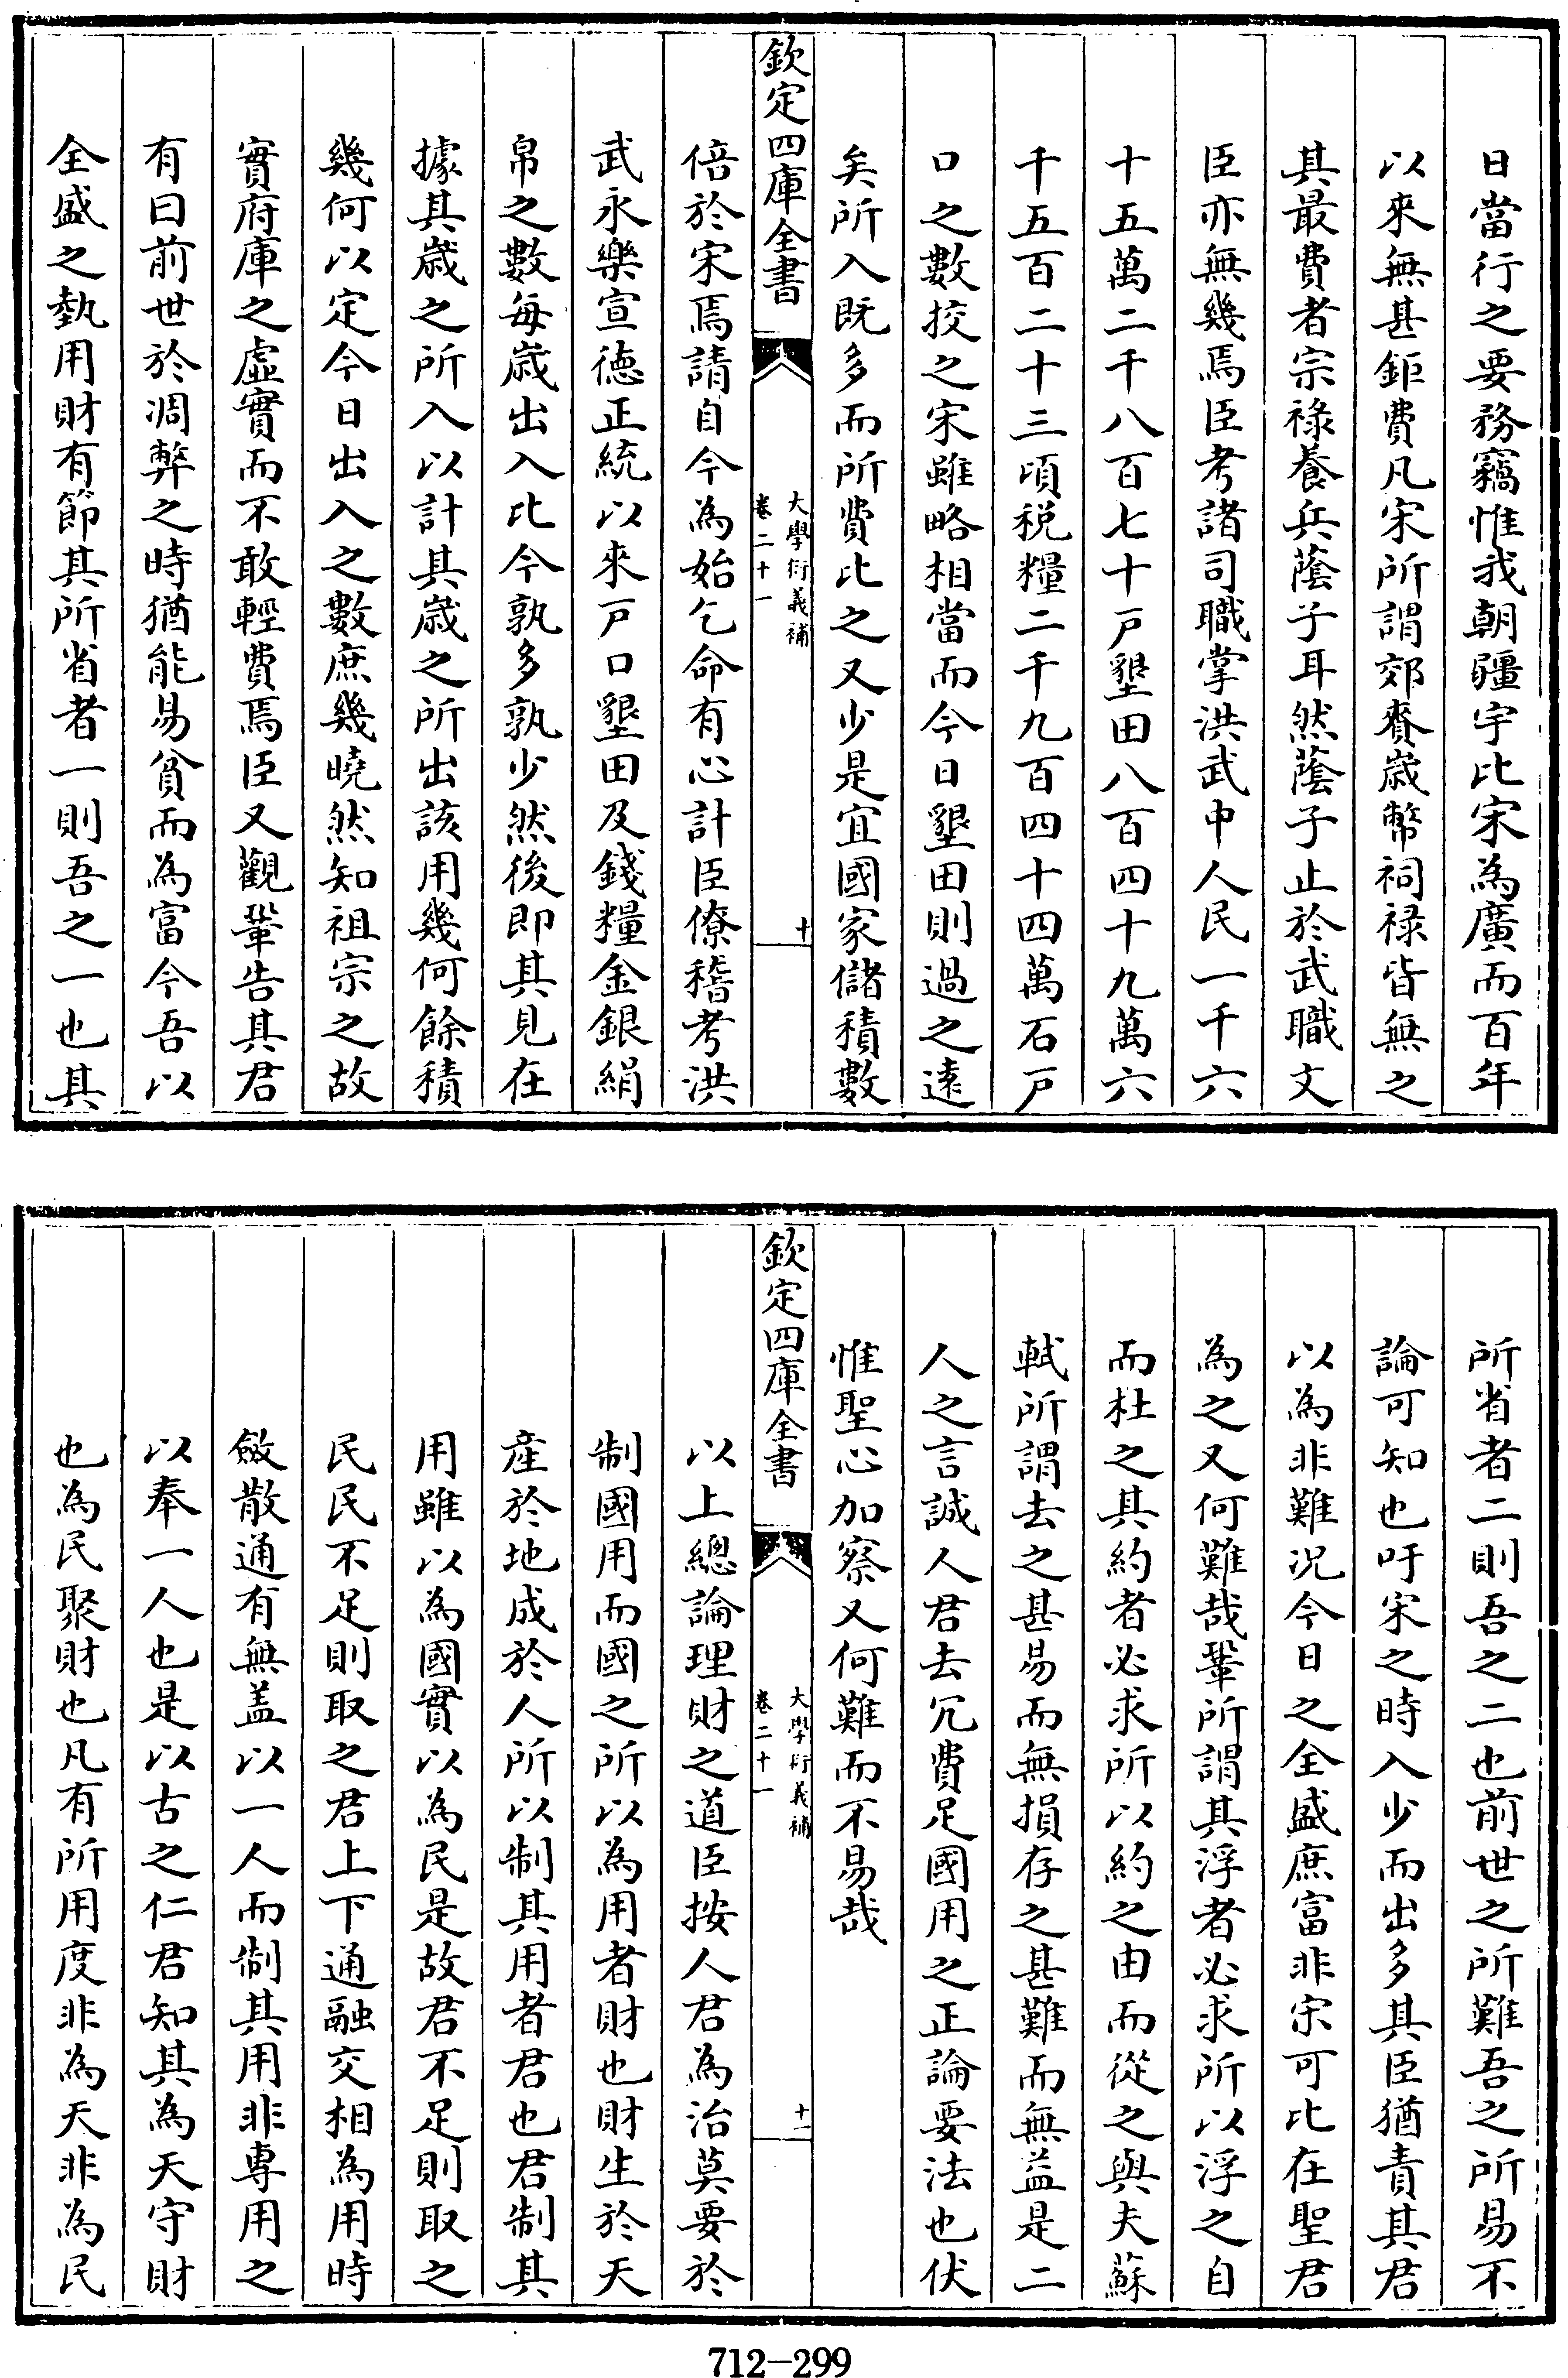 日當行之要務竊惟我朝疆宇比宋為廣而百年
以來無甚鉅費凡宋所謂郊賚歲幣祠祿皆無之
其最費者宗祿養兵蔭子耳然蔭子止於武職文
臣亦無幾焉臣考諸司職掌洪武中人民一千六
十五萬二千八百七十戸墾田八百四十九萬六
千五百二十三頃税糧二千九百四十四萬石戸
口之數挍之宋雖略相當而今日墾田則過之逺
矣所入既多而所費比之又少是宜國家儲積數
欽定四庫全書
大學衍義補
卷二十一
十
倍於宋焉請自今為始乞命有心計臣僚稽考洪
武永樂宣徳正統以來戸口墾田及錢糧金銀絹
帛之數每嵗出入比今孰多孰少然後即其見在
據其嵗之所入以計其嵗之所出該用幾何餘積
幾何以定今日出入之數庶幾曉然知祖宗之故
實府庫之虛實而不敢輕費焉臣又觀鞏告其君
有曰前世於凋弊之時猶能易貧而為富今吾以
全盛之埶用財有節其所省者一則吾之一也其
所省者二則吾之二也前世之所難吾之所易不
論可知也吁宋之時入少而出多其臣猶責其君
以為非難况今日之全盛庶富非宋可比在聖君
為之又何難哉鞏所謂其浮者必求所以浮之自
而杜之其約者必求所以約之由而從之與夫蘇
軾所謂去之甚易而無損存之甚難而無益是二
人之言誠人君去冗費足國用之正論要法也伏
惟聖心加察又何難而不易哉
欽定四庫全書
大學衍義補
卷二十一
十一
以上總論理財之道臣按人君為治莫要於
制國用而國之所以為用者財也財生於天
産於地成於人所以制其用者君也君制其
用雖以為國實以為民是故君不足則取之
民民不足則取之君上下通融交相為用時
斂散通有無盖以一人而制其用非專用之
以奉一人也是以古之仁君知其為天守財
也為民聚財也凡有所用度非為天非為民
712-299